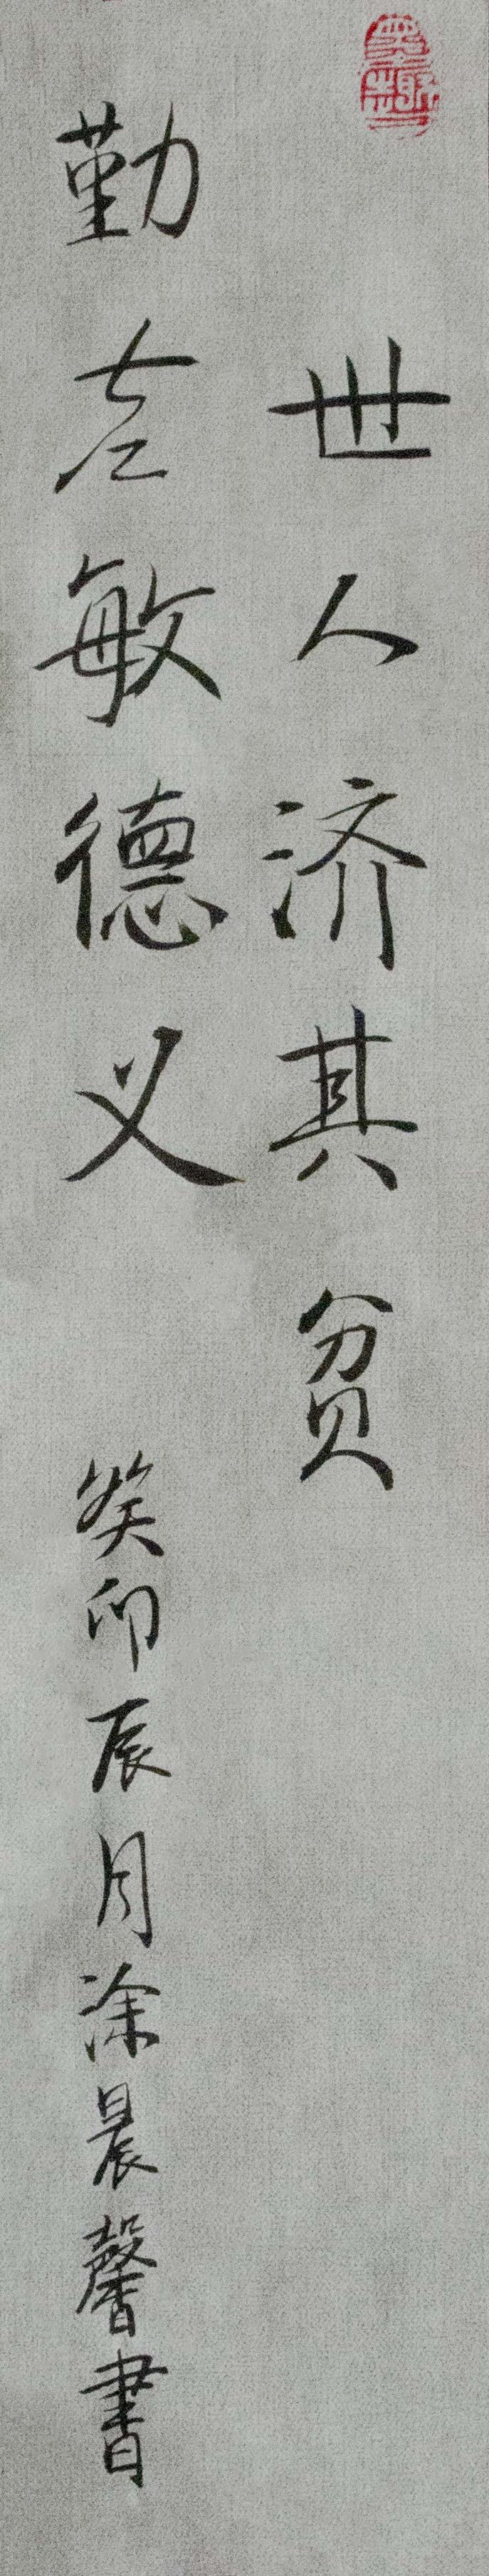 世人济其贫
勤者敏德义
癸卯辰月涂晨馨書